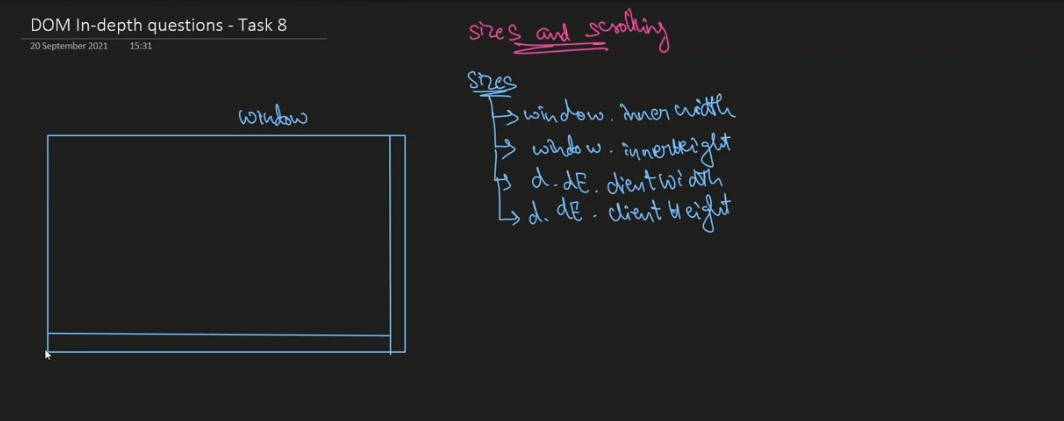 DOM In-depth questions - Task 8
20 September 2021 15:31
sizes and scrolling
sizes
window
window. innerwidth
window. innerHeight
d. dE. clientWidth
d. dE. clientHeight